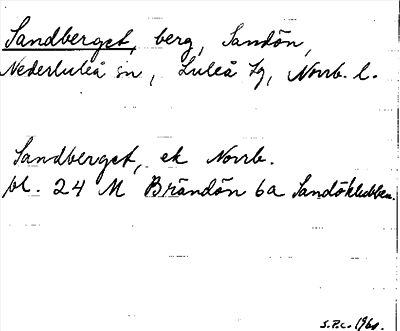 Sandberget, berg, Sandön,
Nederluleå sn, Luleå tg, Norrb. l.
Sandberget, ek Norrb.
bl. 24 M Brändön 6a Sandöklubben.
1961.